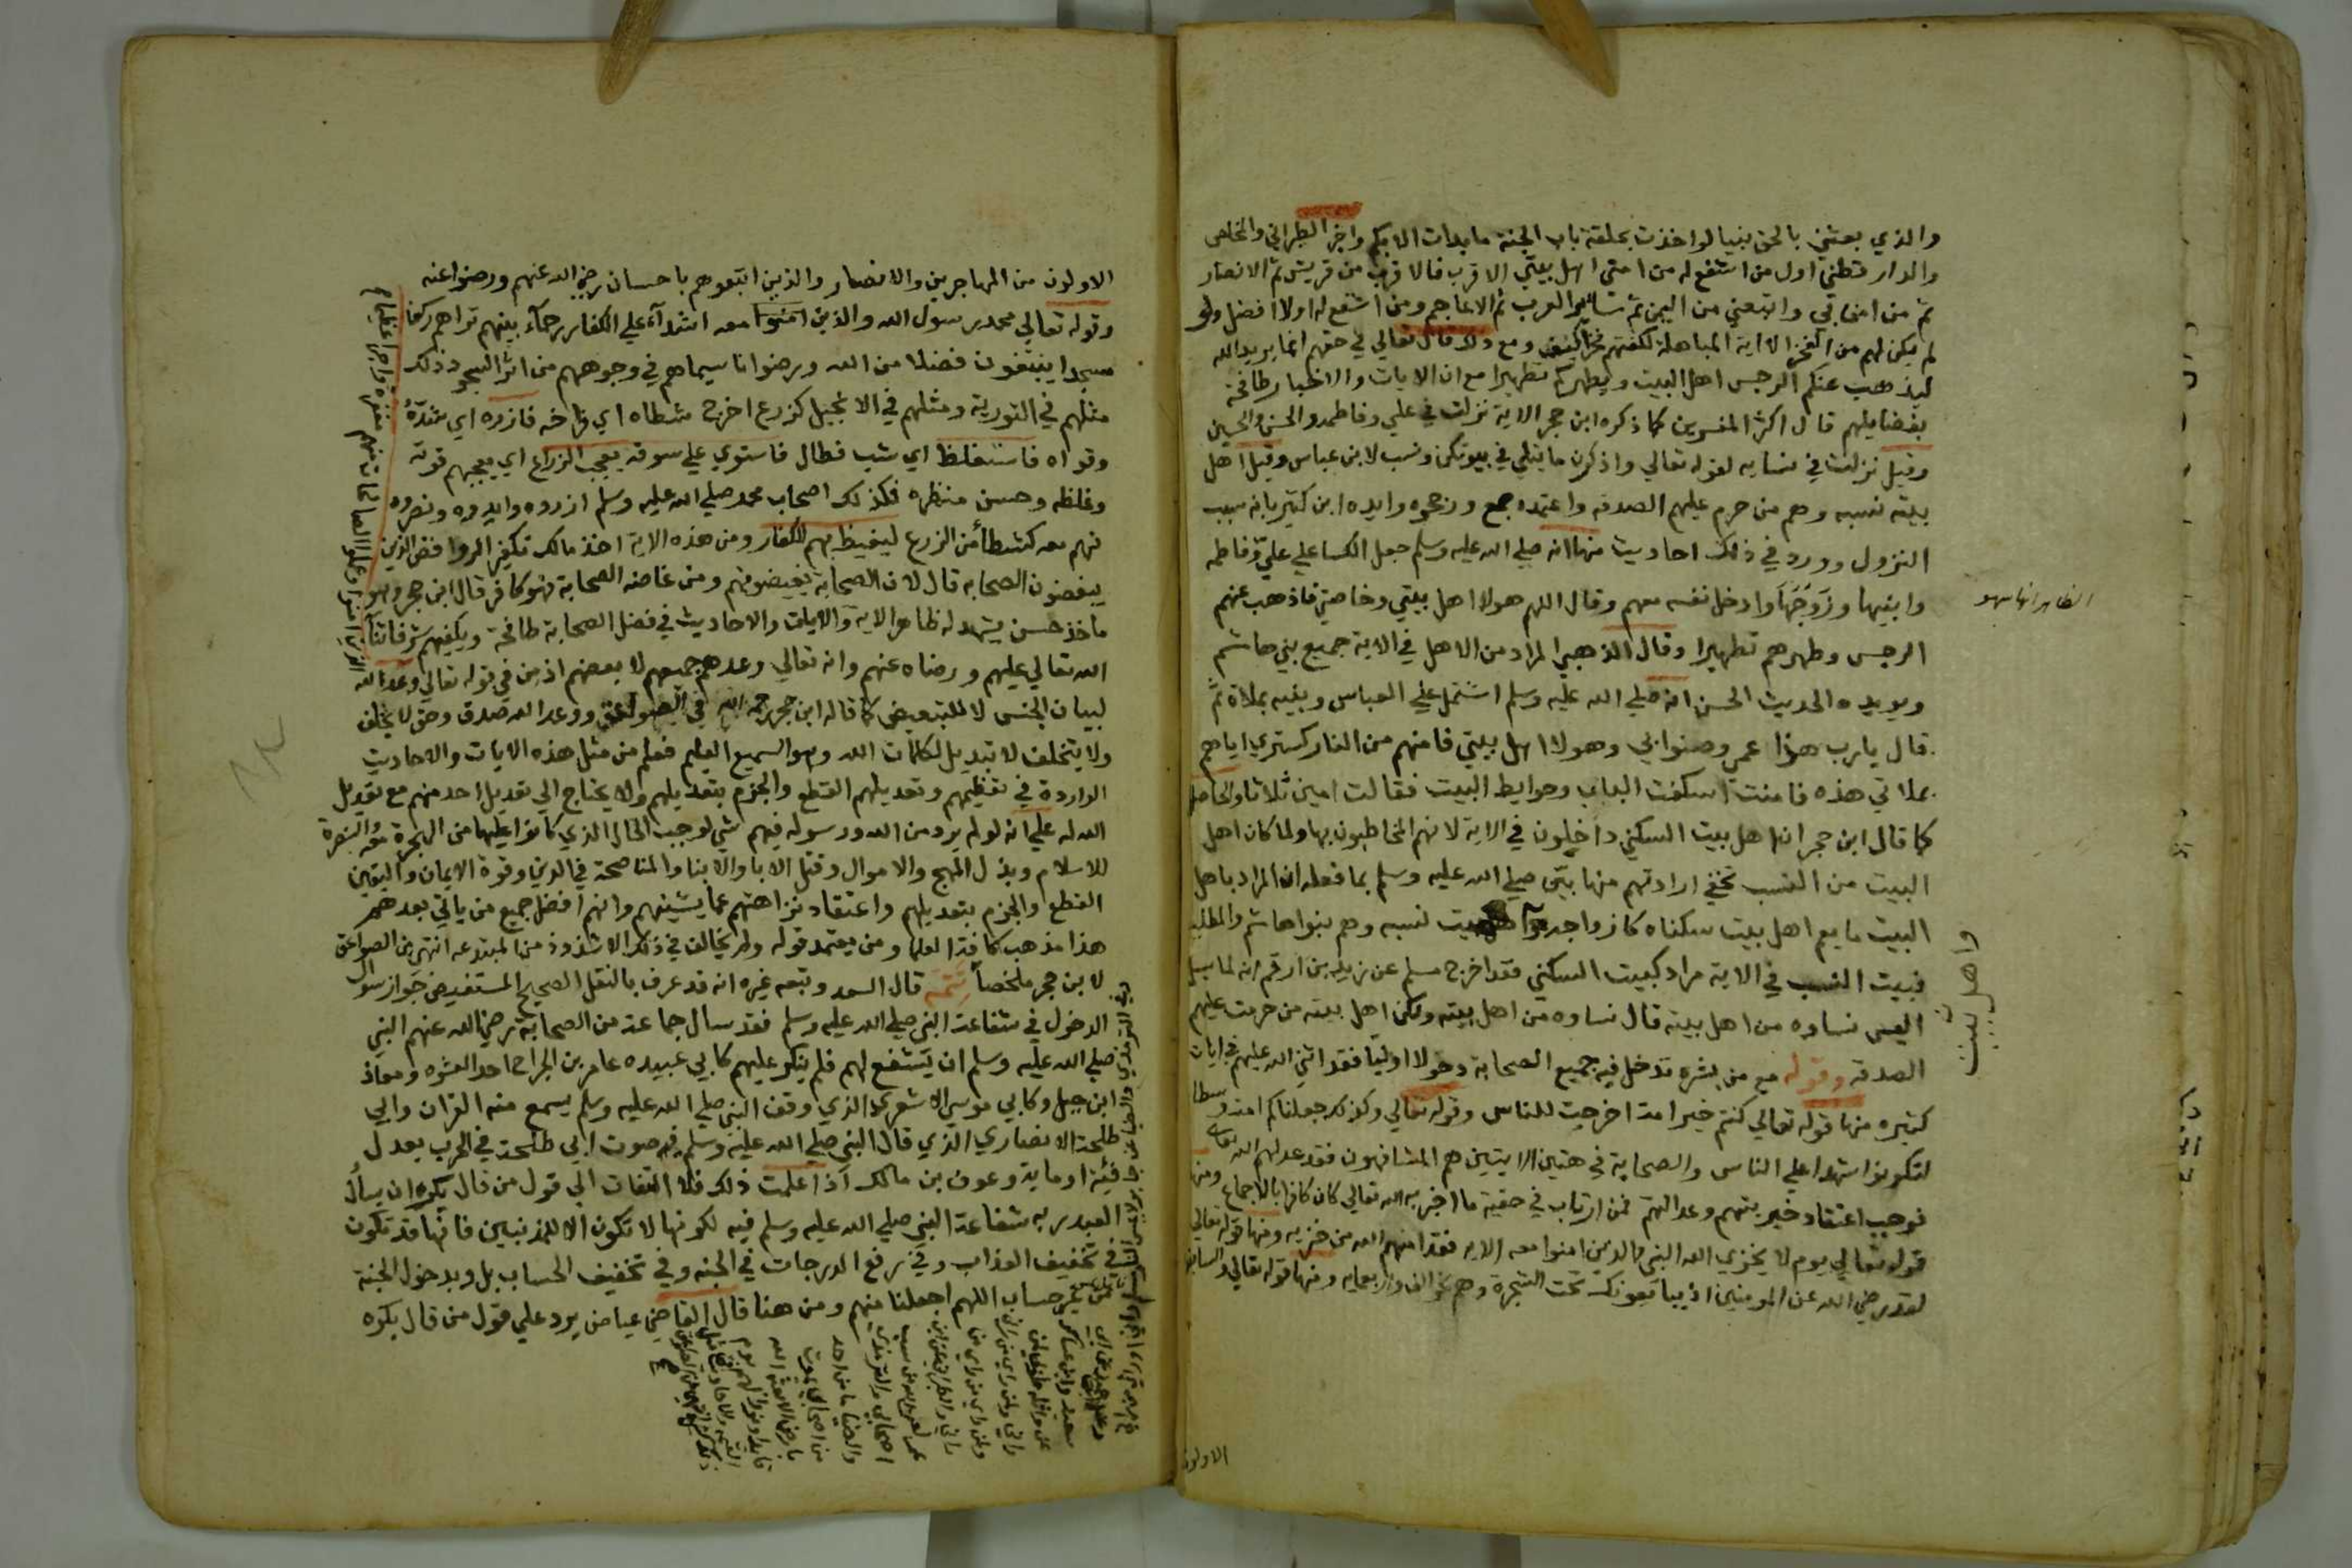 والذي بعثني بالحق نبيا لو اخذت بحلقة باب الجنة ما بدات الا بكم واخرج الطبراني والمخلص
والدار قطني اول من اشفع له من امتي اهل بيتي الاقرب فالاقرب من قريش ثم الانصار
ثم من امن بي واتبعني من اليمن ثم سائر العرب ثم الاعاجم ومن اشفع له اولا افضل ولو
لم يكن لهم من الفخر الا اية المباهلة لكفتهم فخرا كيف ومع ذلك قال تعالي في حقهم انما يريد الله
ليذهب عنكم الرجس اهل البيت ويطهركم تطهيرا مع ان الايات والاخبار طافحة
بفضايلهم قال اكثر المفسرين كما ذكره ابن حجر الاية نزلت في علي وفاطمه والحسن والحسين
وقيل نزلت في نسايه لقوله تعالي واذكرن ما يتلي في بيوتكن ونسب لابن عباس وقيل اهل
بيته نسبه وهم من حرم عليهم الصدقه واعتمده جمع ورجحوه وايده ابن كثير بانه سبب
النزول وورد في ذلك احاديث منها انه صلي الله عليه وسلم جعل الكسا علي علي وفاطمه
وابنيها وزوجها وادخل نفسه معهم وقال اللهم هولا اهل بيتي وخاصتي فاذهب عنهم
الظاهر انها سهو
الرجس وطهرهم تطهيرا وقال الذهبي المراد من الاهل في الاية جميع بني هاشم
ويويده الحديث الحسن انه صلي الله عليه وسلم اشتمل علي العباس وبنيه بملاة ثم
قال يارب هذا عمي وصنو ابي وهولا اهل بيتي فامنهم من النار كستري اياهم
بملاتي هذه فامنت اسكفت الباب وحوايط البيت فقالت امين ثلاثا والحاصل
كما قال ابن حجر ان اهل بيت السكني داخلون في الاية لانهم المخاطبون بها ولما كان اهل
البيت من النسب تخفي ارادتهم منها بين صلي الله عليه وسلم بما فعله ان المراد باهل
البيت ما يعم اهل بيت سكناه كازواجه واهل بيت نسبه وهم بنوا هاشم والمطلب
واهل بيت
فبيت النسب في الاية مراد كبيت السكني فقد اخرج مسلم عن زيد بن ارقم انه لما سيل
اليس نساوه من اهل بيته قال نساوه من اهل بيته ولكن اهل بيته من حرمت عليهم
الصدقه وقوله مع من بشره تدخل فيه جميع الصحابة دخولا اوليا فقد اثني الله عليهم في ايات
كثيره منها قوله تعالي كنتم خير امة اخرجت للناس وقوله تعالي وكذلك جعلناكم امة وسطا
لتكونوا شهدا علي الناس والصحابة في هتين الايتين هم المشافهون فقد عدلهم الله تعالي
فوجب اعتقاد خيريتهم وعدالتهم فمن ارتاب في حقية ما اخبر به الله تعالي كان كافرا بالاجماع ومنها
قوله تعالي يوم لا يخزي الله النبي والذين امنوا معه الاية فقد امنهم الله من خزيه ومنها قوله تعالي
لقد رضي الله عن المومنين اذ يبايعونك تحت الشجرة وهم نحو الف واربعمايه ومنها قوله تعالي والسابقون
الاولون
الاولون من المهاجرين والانصار والذين اتبعوهم باحسان رضي الله عنهم ورضوا عنه
وقوله تعالي محمد رسول الله والذين امنوا معه اشداء علي الكفار رحماء بينهم تراهم ركعا
سجدا يبتغون فضلا من الله ورضوانا سيماهم في وجوههم من اثر السجود ذلك
مثلهم في التورية ومثلهم في الانجيل كزرع اخرج شطاه اي فراخه فازره اي شده
وقواه فاستغلظ اي شب فطال فاستوي علي سوقه يعجب الزراع اي يعجبهم قوته
وغلظه وحسن منظره فكذلك اصحاب محمد صلي الله عليه وسلم ازروه وايدوه ونصروه
فهم معه كشطأ من الزرع ليغيظ بهم الكفار ومن هذه الاية اخذ مالك تكفير الروافض الذين
يبغضون الصحابه قال لان الصحابة يغيضونهم ومن غاضه الصحابة فهو كافر قال ابن حجر وهو
ماخذ حسن يشهد له ظاهر الاية والايات والاحاديث في فضل الصحابة طافحة ويكفيهم شرفا ثناء
الله تعالي عليهم ورضاه عنهم وانه تعالي وعدهم جميعهم لا بعضهم اذ من في قوله تعالي وعد الله
الذين امنوا وعملوا الصالحات منهم مغفرة واجرا عظيما
لبيان الجنس لا للتبعيض كما قاله ابن حجر رحمه الله في الصواعق ووعد الله صدق وحق لا يخلف
ولا يتخلف لا تبديل لكلمات الله وهو السميع العليم فعلم من مثل هذه الايات والاحاديث
الواردة في تعظيمهم وتعديلهم القطع والجزم بتعديلهم ولا يحتاج الي تعديل احد منهم مع تعديل
الله له علي انه لو لم يرد من الله ورسوله فيهم شي لوجبت الحال الذي كانوا عليها من الهجرة والنصرة
للاسلام وبذل المهج والاموال وقتل الابا والابنا والمناصحة في الدين وقوة الايمان واليقين
القطع والجزم بتعديلهم واعتقاد نزاهتهم عما يشينهم وانهم افضل جميع من ياتي بعدهم
هذا مذهب كافة العلما ومن يعتمد قوله ولم يخالف في ذلك الا شذوذ من المبتدعه انتهي من الصواعق
لابن حجر ملخصا تتمه قال السعد وتبعه غيره انه قد عرف بالنقل الصحيح المستفيض جواز سوال
الدخول في شفاعة النبي صلي الله عليه وسلم فقد سال جماعة من الصحابة رضي الله عنهم النبي
صلي الله عليه وسلم ان يشفع لهم فلم ينكر عليهم كابي عبيده عامر بن الجراح احد العشره ومعاذ
ابن جبل وكابي موسي الاشعري الذي وقف النبي صلي الله عليه وسلم يسمع منه القران وابي
طلحة الانصاري الذي قال النبي صلي الله عليه وسلم فيه صوت ابي طلحة في الحرب يعدل
فئة او ماية وعوف بن مالك اذا علمت ذلك فلا التفات الي قول من قال يكره ان يسأل
العبد ربه شفاعة النبي صلي الله عليه وسلم فيه لكونها لا تكون الا للمذنبين فانها قد تكون
في تخفيف العذاب وفي رفع الدرجات في الجنه وفي تخفيف الحساب بل وبدخول الجنة
من غير حساب اللهم اجعلنا منهم ومن هنا قال القاضي عياض يرد علي قول من قال يكره